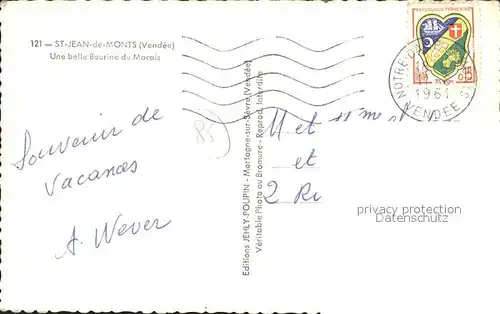 121 — ST-JEAN-de-MONTS (Vendée)
Une belle Bourine du Marais
Souvenir de
Vacances
A. Wever
Editions JEHLY-POUPIN - Mortagne-sur-Sèvre (Vendée)
Véritable Photo au Bromure - Reprod. Interdite
RÉPUBLIQUE FRANÇAISE
0,15
NOTRE-DA
1961
VENDEE
Met
et
2 Ri
privacy protection
Datenschutz